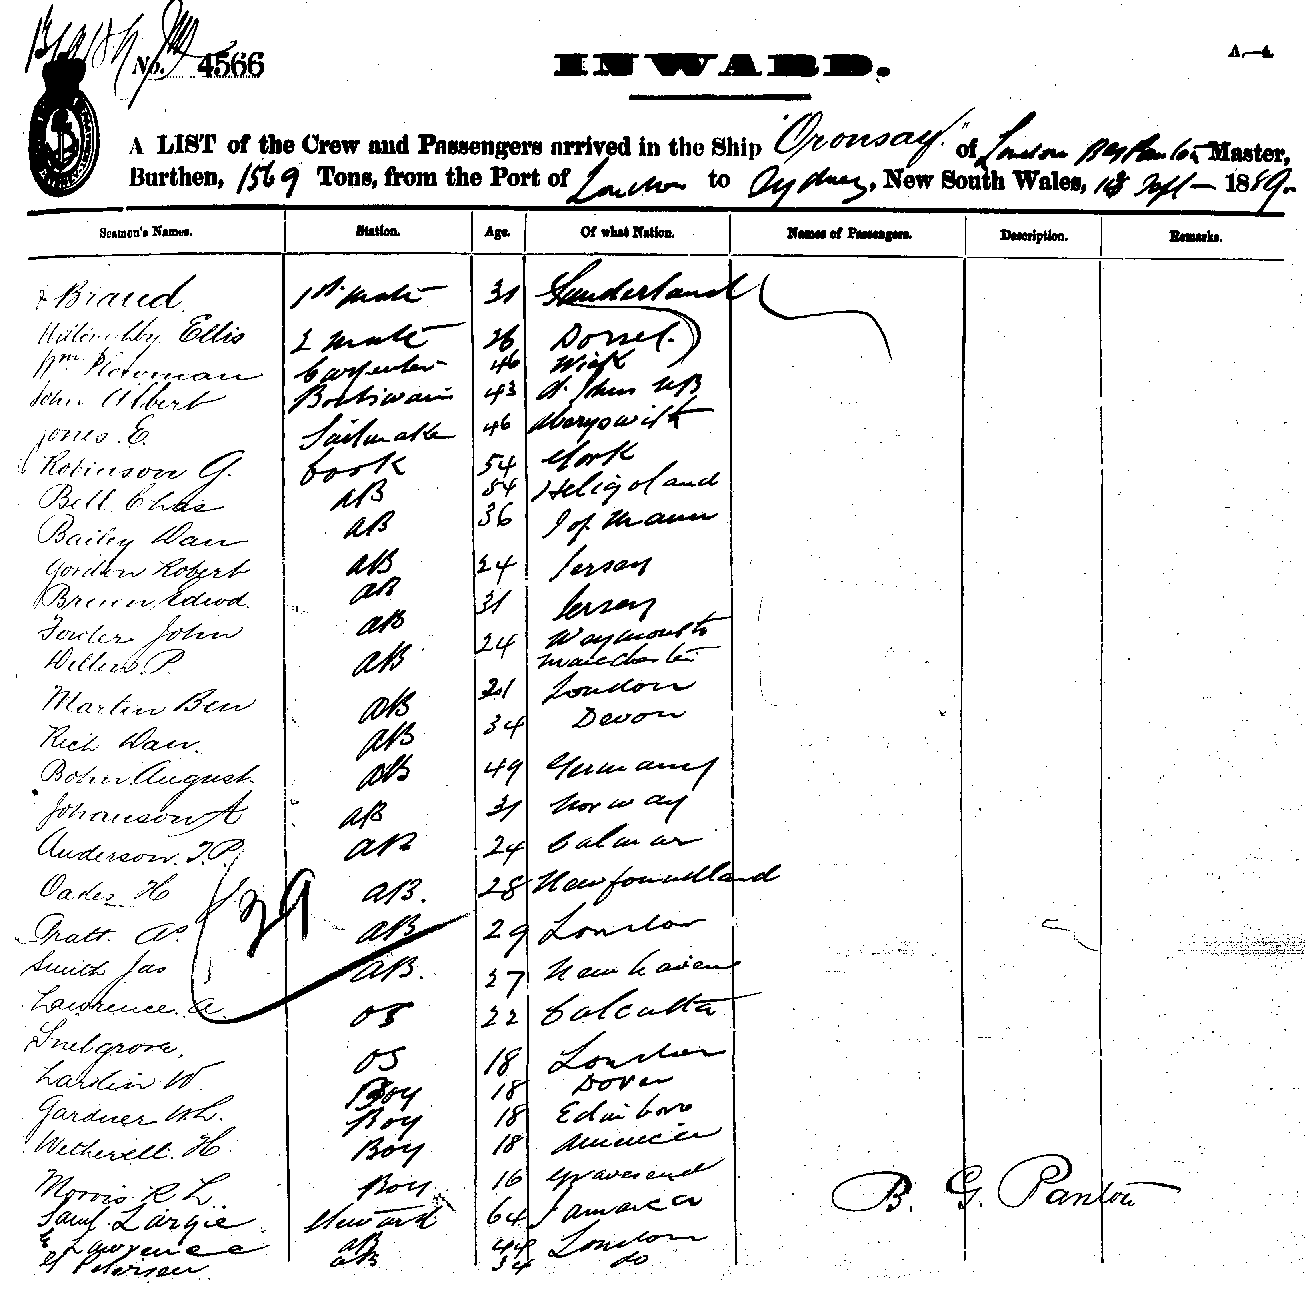 No. 4566
INWARD.
A.—4
A LIST of the Crew and Passengers arrived in the Ship "Oronsay" of London B G Panton Master,
Burthen, 1569 Tons, from the Port of London to Sydney, New South Wales, 18 Sept — 1889.
Seamen's Names. Station. Age. Of what Nation. Names of Passengers. Description. Remarks.
Braud 1st mate 31 Sunderland
Willoughby Ellis 2 mate 26 Dorset
Wm Plowman Carpenter 46 Wick
John Albert Boatswain 43 St Johns NB
Jones E. Sailmaker 46 Aberyswith
Robinson G. Cook 54 York
Bell Chas AB 54 Heligoland
Bailey Dan AB 36 I of Mann
Gordon Robert AB 24 Jersey
Brown Edwd. AB 31 Jersey
John AB 24 Waymouth
P. AB Manchester
Martin Ben AB 21 London
Rich Dan. AB 34 Devon
Bohn August AB 49 Germany
Johanson A AB 31 Norway
Anderson. J.P. AB 24 Calmar
Oades H AB. 28 Newfoundland
29
Pratt. As. AB 29 London
Smith Jas AB. 27 Newhaven
Lawrence. A. OS 22 Calcutta
Snelgrove. OS 18 London
Lardin W. Boy 18 Dover
Gardner W.L. Boy 18 Edinboro
Wetherell. H. Boy 18 America
Morris R L. Boy 16 Gravesend
B. G. Panton
Saml Largie Steward 64 Jamaica
Lawrence AB 44 London
Petersen AB 34 do